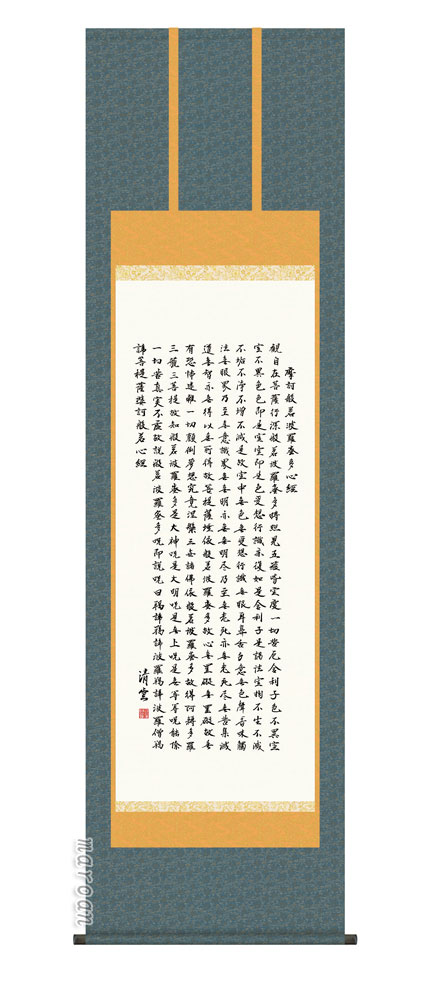 摩訶般若波羅蜜多心經
観自在菩薩行深般若波羅蜜多時照見五蘊皆空度一切苦厄舎利子色不異空
空不異色色即是空空即是色受想行識亦復如是舎利子是諸法空相不生不滅
不垢不浄不増不減是故空中無色無受想行識無眼耳鼻舌身意無色聲香味觸
法無眼界乃至無意識界無無明亦無無明尽乃至無老死亦無老死尽無苦集滅
道無智亦無得以無所得故菩提薩埵依般若波羅蜜多故心無罣礙無罣礙故無
有恐怖遠離一切顛倒夢想究竟涅槃三世諸佛依般若波羅蜜多故得阿耨多羅
三藐三菩提故知般若波羅蜜多是大神呪是大明呪是無上呪是無等等呪能除
一切苦真実不虚故説般若波羅蜜多呪即説呪曰羯諦羯諦波羅羯諦波羅僧羯
諦菩提薩婆訶般若心經
清雲
maroan